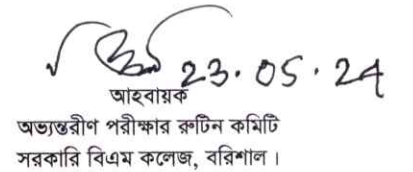 23.05.24
আহবায়ক
অভ্যন্তরীণ পরীক্ষার রুটিন কমিটি
সরকারি বিএম কলেজ, বরিশাল।